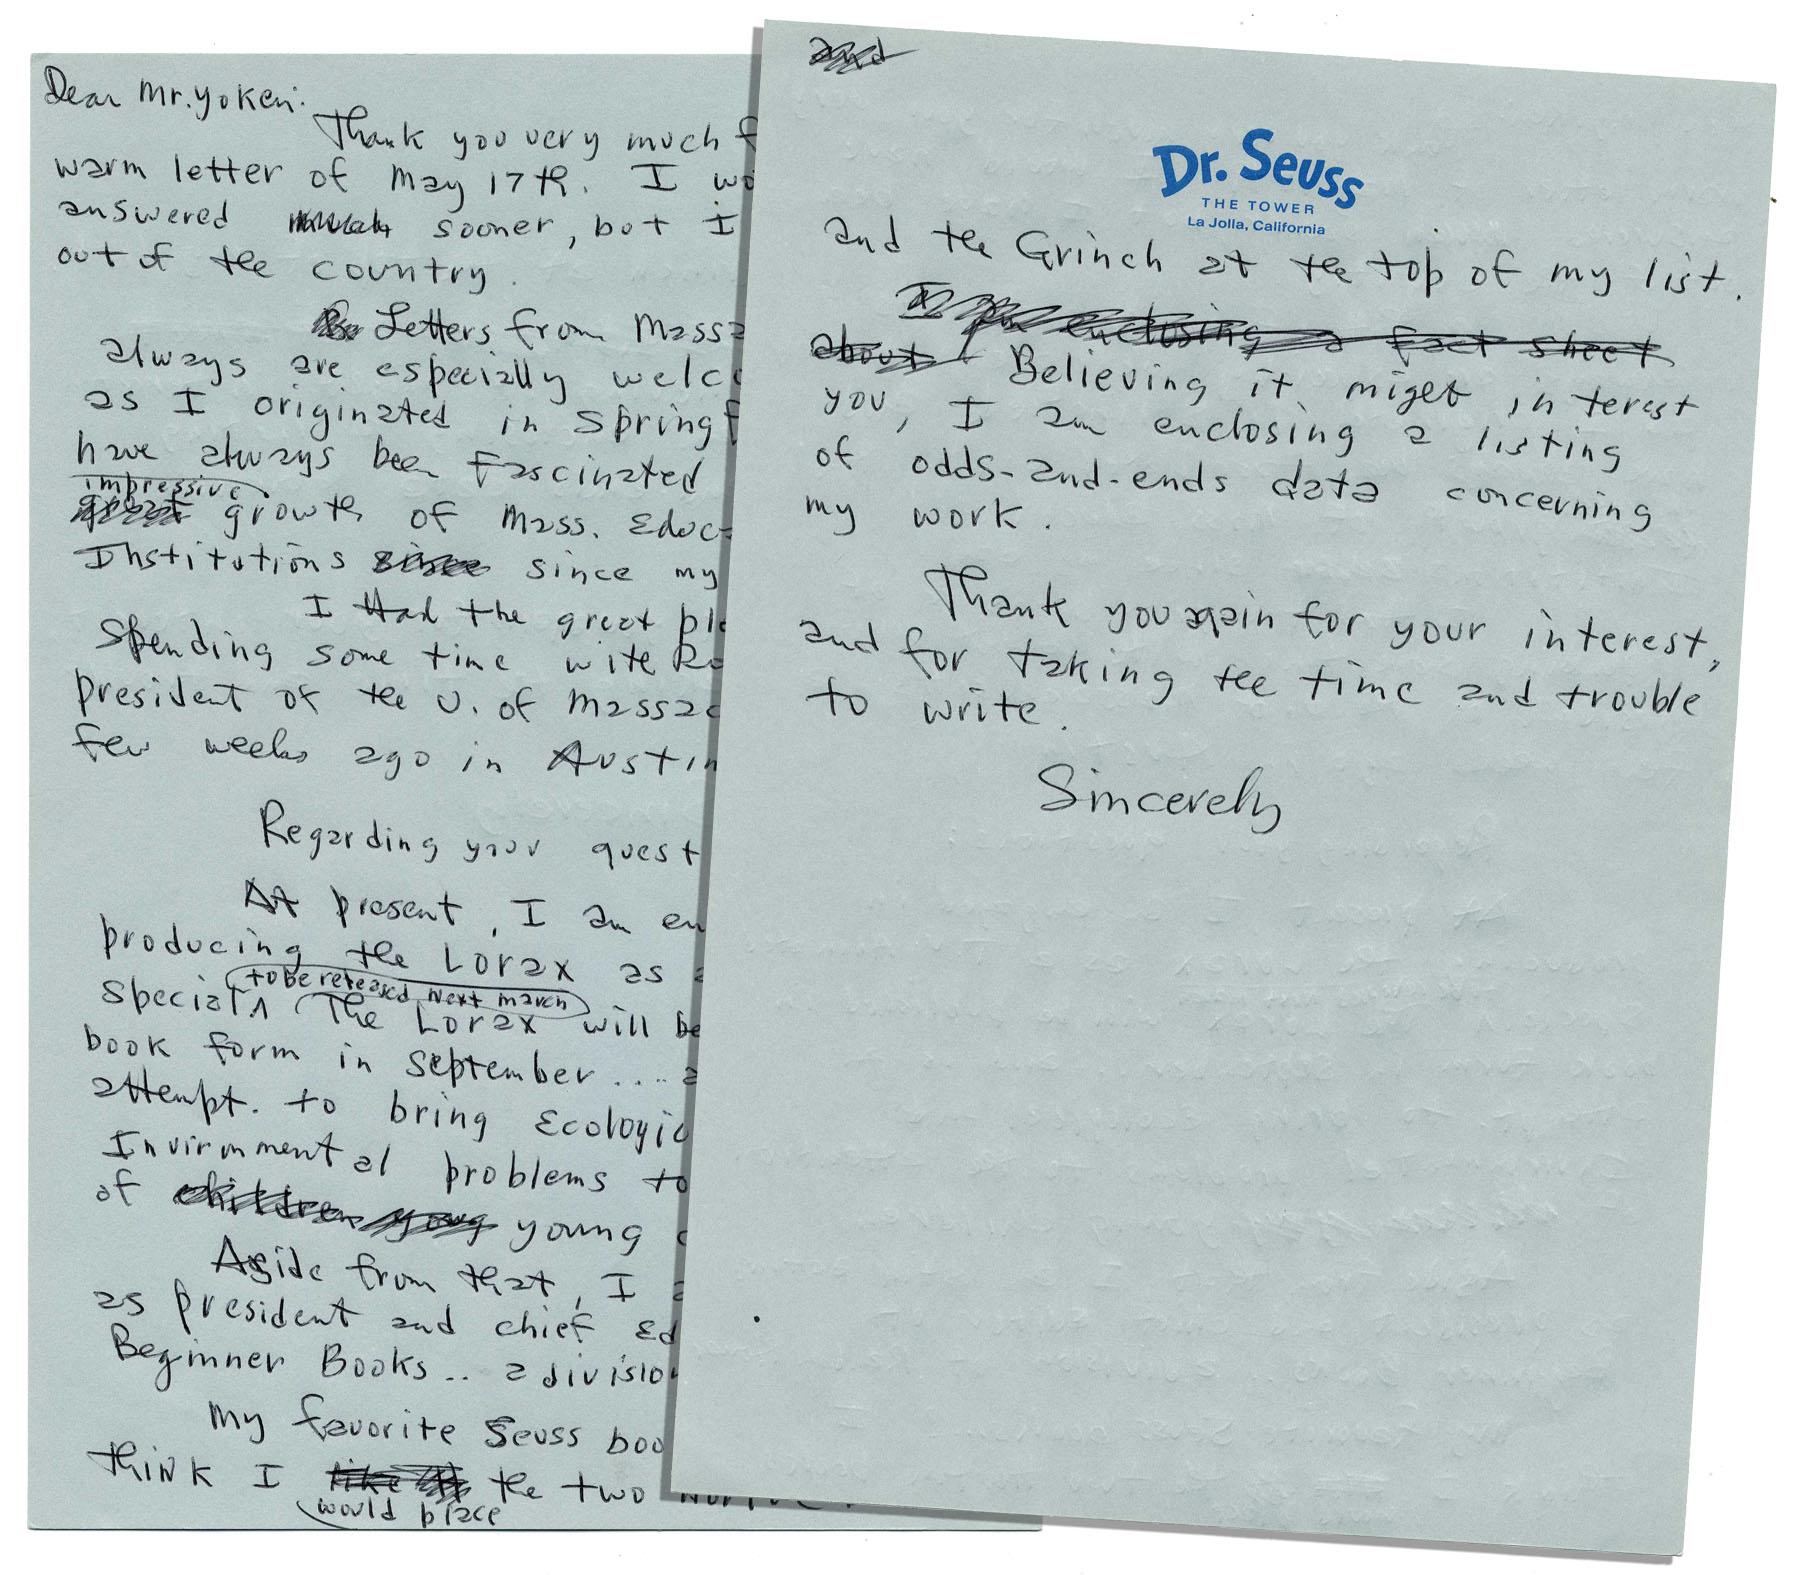 Dear Mr. Yoken:
Thank you very much f
warm letter of May 17th. I wo
answered much sooner, but I
out of the country.
Letters from Massa
always are especially welc
as I originated in Springf
have always been Fascinated
impressive
great growth of Mass. Educa
Institutions since since my
I Had the great ple
spending some time with Ro
president of the U. of Massac
few weeks ago in Austin
Regarding your quest
At present, I am en
producing the Lorax as a
to be released next march
special (The Lorax will be
book form in September.... a
attempt. to bring Ecologic
Invironmental problems to
of children young young c
Aside from that, I a
as president and chief Ed
Beginner Books.. a division
My favorite Seuss boo
think I like the two
would place
and
Dr. Seuss
THE TOWER
La Jolla, California
and the Grinch at the top of my list.
I am enclosing a fact sheet
about Believing it might interest
you, I am enclosing a listing
of odds-and-ends data concerning
my work.
Thank you again for your interest,
and for taking the time and trouble
to write.
Sincerely